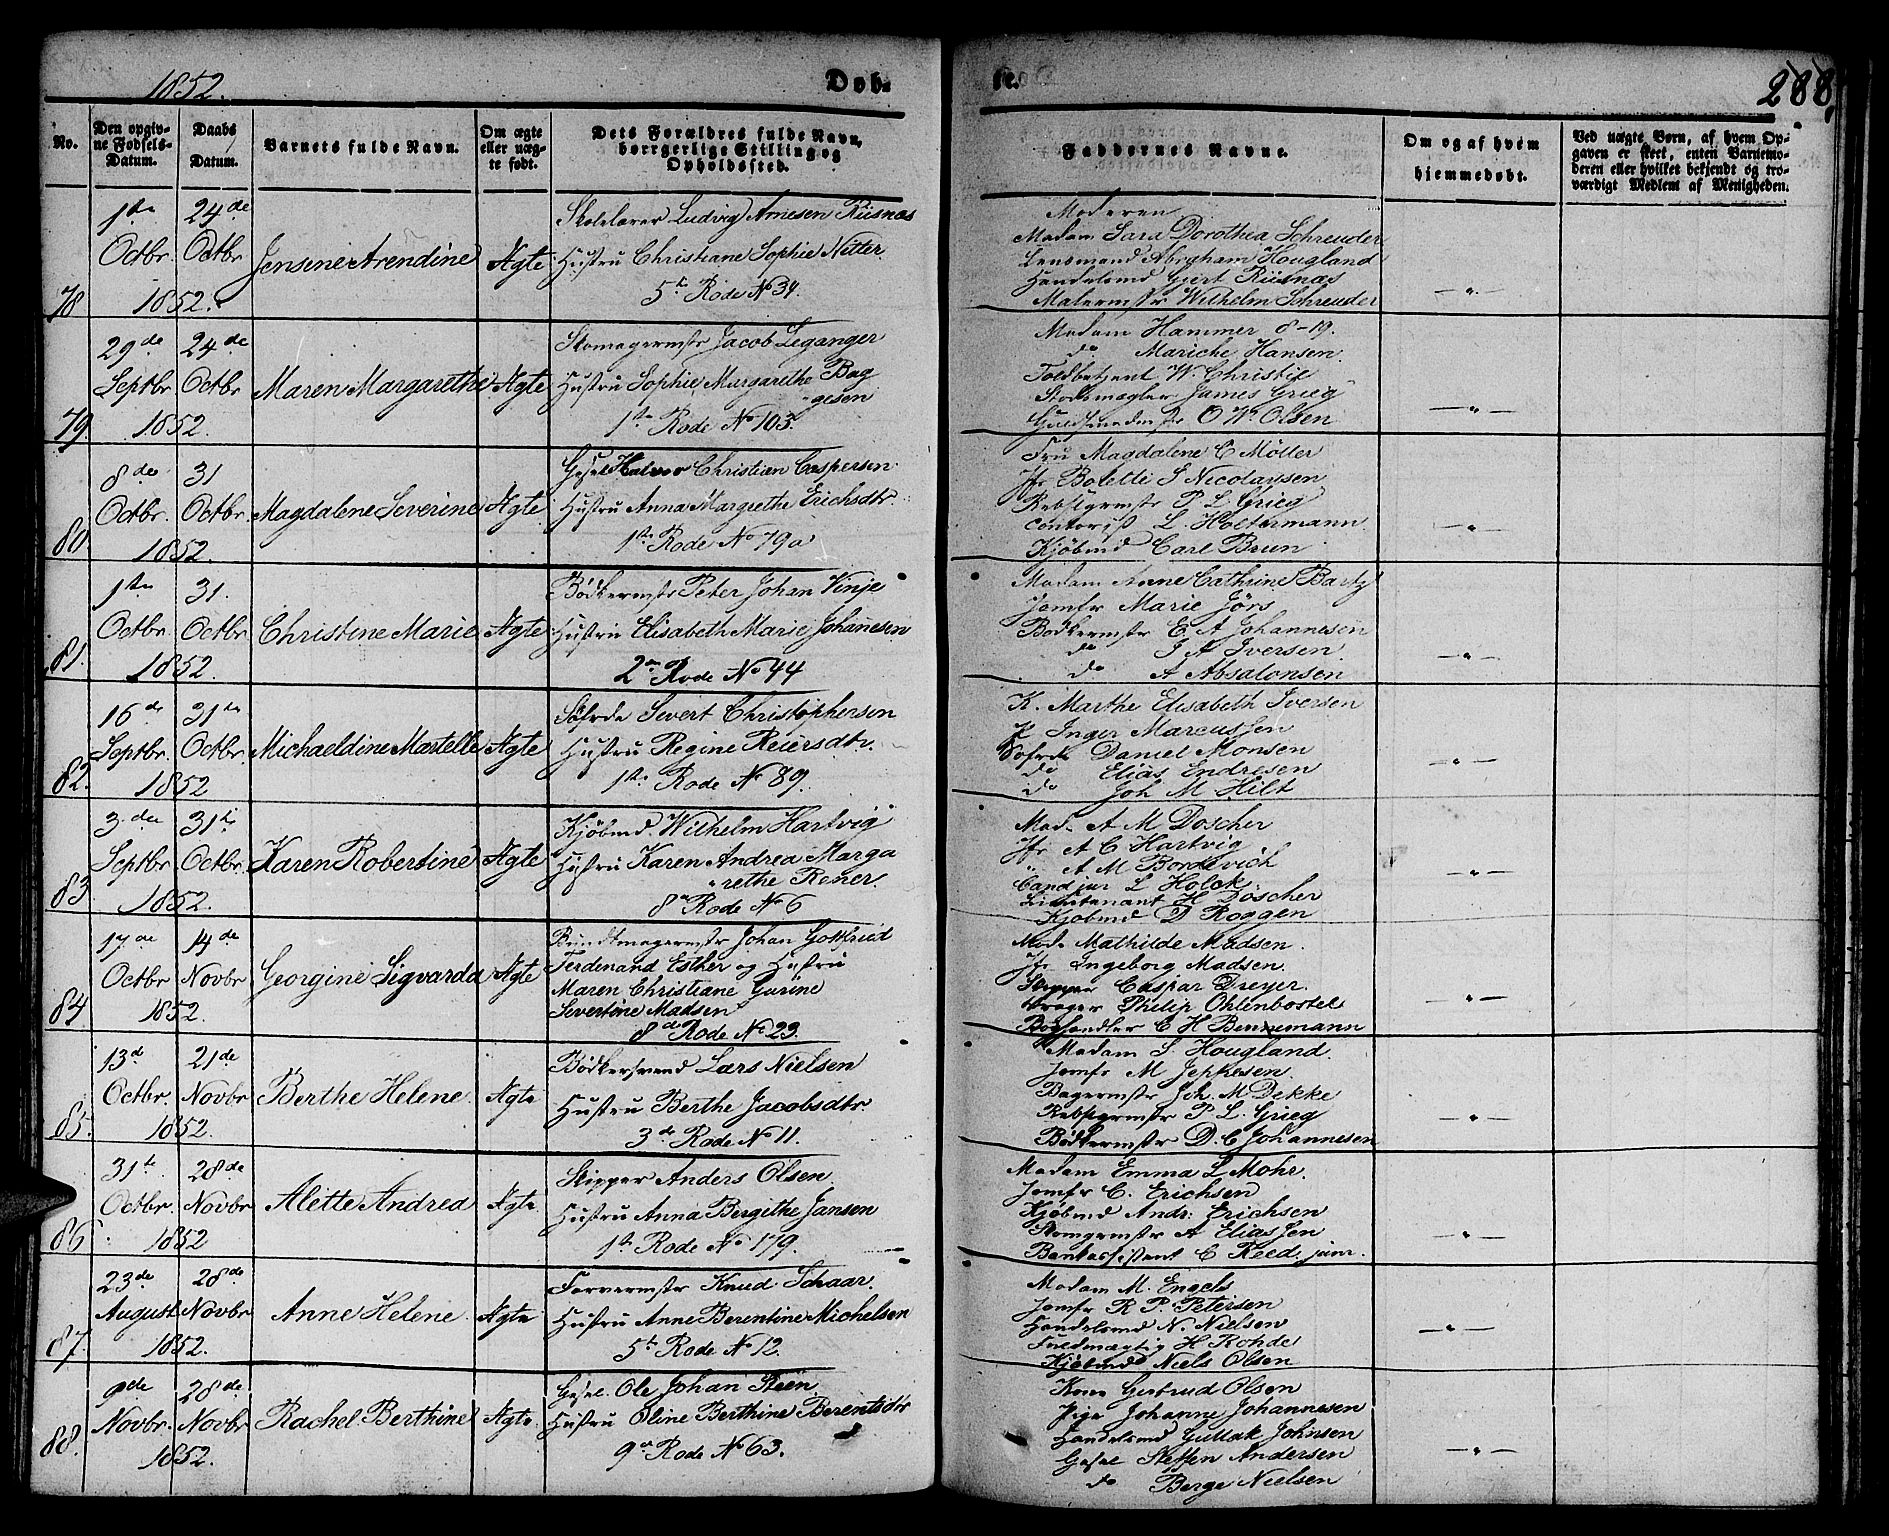 1852.
Døb-
te.
288
No.
Den opgiv-
ne Fødsels-
Datum.
Daabs
Datum.
Barnets fulde Navn.
Om ægte
eller uæg-
te født.
Dets Forældres fulde Navn,
borgerlige Stilling og
Opholdssted.
Faddernes Navne.
Om og af hvem
hjemmedøbt.
Ved uægte Børn, af hvem Op-
gaven er skeet, enten Barnemo-
deren eller hvilket bekjendt og tro-
værdigt Medlem af Menigheden.
78
1ste Octbr 1852.
24de Octbr
Jensine Arendine
Ægte
Skolelærer Ludvig Arnesen Riisnæs
Hustru Christiane Sophie Nitter
5te Rode No 34.
Moderen
Madam Sara Dorothea Schreuder
Lensmand Abraham Hougland
Handelsmd Gjert Riisnæs
Malermstr Wilhelm Schreuder
— " —
79.
29de Septbr 1852.
24de Octbr
Maren Margarethe
Ægte
Skomagermstr Jacob Leganger
Hustru Sophie Margarethe Bag
"gesen
1ste Rode No 103.
Madam Hammer 8-19.
do Mariche Hansen
Toldbetjent W. Christie
Stadsmægler James Grieg
Guldsmedmstr O Wm Olsen
— " —
80.
8de Octbr. 1852.
31 Octbr.
Magdalene Severine
Ægte
Gesel Halvor Christian Caspersen
Hustru Anna Margrethe Erichsdtr.
1ste Rode No 79a
Fru Magdalene C Möller
Jfr Boletti S Nicolaysen
Rebslgrmstr P L Grieg
Contorist L. Holtermann
Kjöbmd Carl Brun
— " —
81.
1ste Octbr. 1852.
31. Octbr.
Christine Marie
Ægte
Bødkermstr Peter Johan Vinje
Hustru Elisabeth Marie Johanesen
2en Rode No 44
Madam Anne Cathrine Bartz
Jomfr Marie Jörs
Bødkermstr E A Johannesen
do J A Iversen
do A Absalonsen
— " —
82.
16de Septbr. 1852
31te Octbr.
Michaeldine Martelle
Ægte
Søfrde Severt Christophersen
Hustru Regine Reiersdtr.
1ste Rode No 89.
K. Marthe Elisabeth Iversen
K Inger Marcussen
Søfrde Daniel Monsen
do Elias Endresen
do Joh M Hilt
— " —
83.
3die Septbr. 1852.
31te Octbr.
Karen Robertine
Ægte
Kjöbmd. Wilhelm Hartvig
Hustru Karen Andrea Marga
"rethe Rener.
8de Rode No 6
Mad. A M Döscher
Jfr A C Hartvig
" A M Bordevich
Cand jur L Holck
Lieutenant H Döscher
Kjöbmd D Roggen
— " —
84
17de Octbr 1852.
14de Novbr
Georgine Sigvarda
Ægte
Bundtmagermstr Johan Gottfried
Ferdinand Esther og Hustru
Maren Christiane Gurine
Severtine Madsen
8de Rode No 23.
Mad. Mathilde Madsen.
Jfr Ingeborg Madsen.
Skipper Caspar Dreyer.
Drager Philip Ohlenbostel
Boghandler C H Bennemann
— " —
85.
13de Octbr. 1852.
21de Novbr
Berthe Helene.
Ægte
Bødkersvend Lars Nielsen
Hustru Berthe Jacobsdtr.
3de Rode No 11.
Madam S. Hougland.
Jomfr M Jepkesen.
Bagermstr Joh. M Dekke
Rebslgrmstr P. L. Grieg
Bødkermstr D. C Johannesen
— " —
86.
31te Octbr. 1852
28de Novbr
Alette Andrea
Ægte
Skipper Anders Olsen.
Hustru Anna Bergithe Jansen
1ste Rode No 179.
Madam Emma L Mohr.
Jomfr C. Erichsen
Kjöbmd Andr: Erichsen
Skomgrmstr A Eliassen
Bankassistent C Reed. junr.
— " —
87.
23de August 1852.
28de Novbr
Anne Helene.
Ægte
Farvermstr Knud Schaar.
Hustru Anne Berentine Michelsen
5te Rode No 12.
Madam M. Engels
Jomfr R P. Petersen
Handelsmd N. Nielsen
Fuldmægtig H Rohde
Kjöbmd Niels Olsen
— " —
88.
9de Novbr. 1852.
28de Novbr
Rachel Berthine
Ægte.
Gesel. Ole Johan Steen.
Hustru Oline Berthine Berentsdtr
9de Rode No 63.
Kone Gertrud Olsen
Pige Johanne Johannesen
Handelsmd Gullak Johnsen
Gesel Steffen Andersen
do Berge Nielsen
— " —